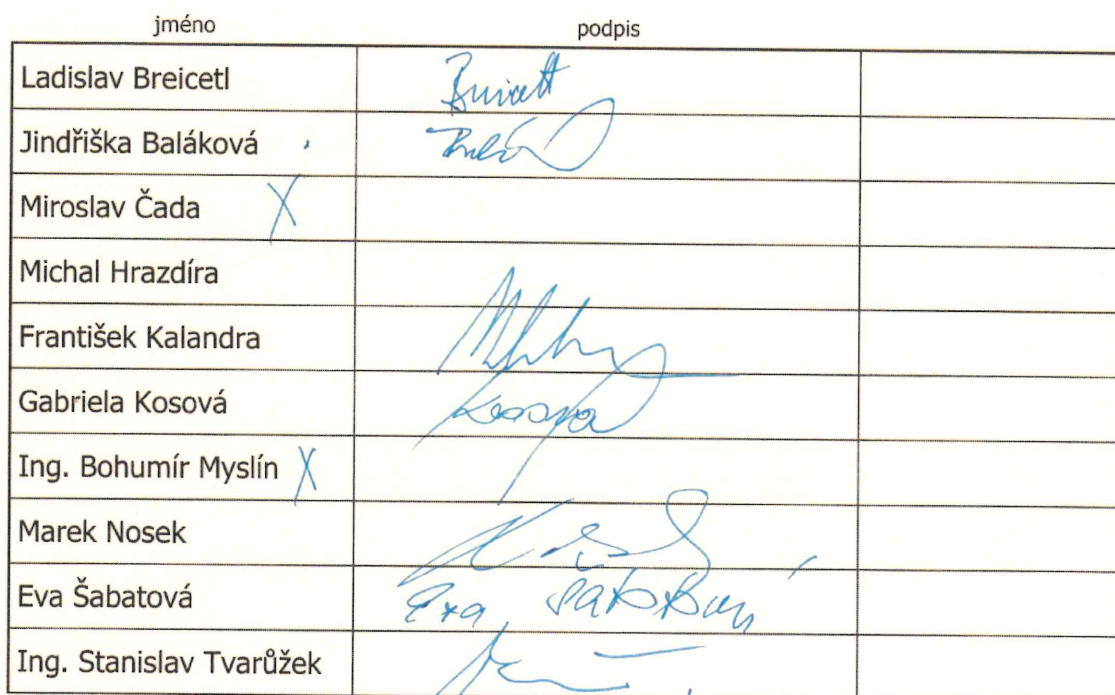 jméno podpis
Ladislav Breicetl
Jindřiška Baláková
Miroslav Čada X
Michal Hrazdíra
František Kalandra
Gabriela Kosová Kosova
Ing. Bohumír Myslín X
Marek Nosek
Eva Šabatová Eva
Ing. Stanislav Tvarůžek